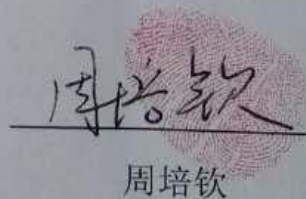 周培钦
周培钦